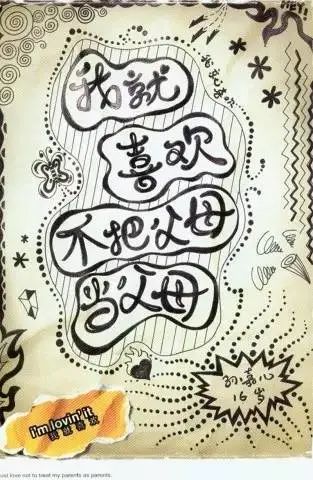 HEY!
我就喜欢
我就
喜欢
不把父母
当父母
16岁
i'm lovin' it
我就喜欢
just love not to treat my parents as parents.